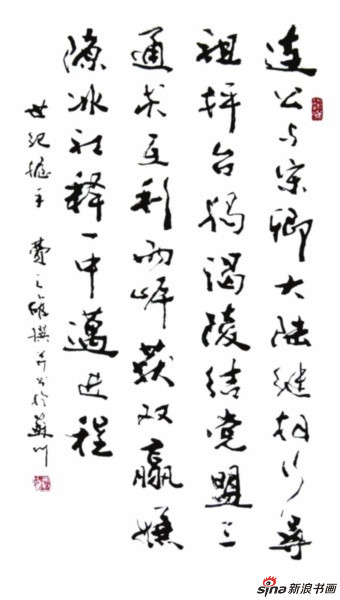 连公与宋卿大陆继相行尋
祖抨台獨谒陵结党盟三
通求互利两岸获双赢嫌
隙冰初释一中邁进程
世纪握手 费之雄撰并书於蘇州
sina新浪书画